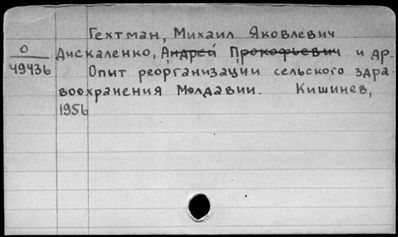 Гехтман, Михаил Яковлевич
О
49436
Дискаленко, Андрей Прокофьевич и др.
Опыт реорганизации сельского здра-
воохранения Молдавии. Кишинев,
1956